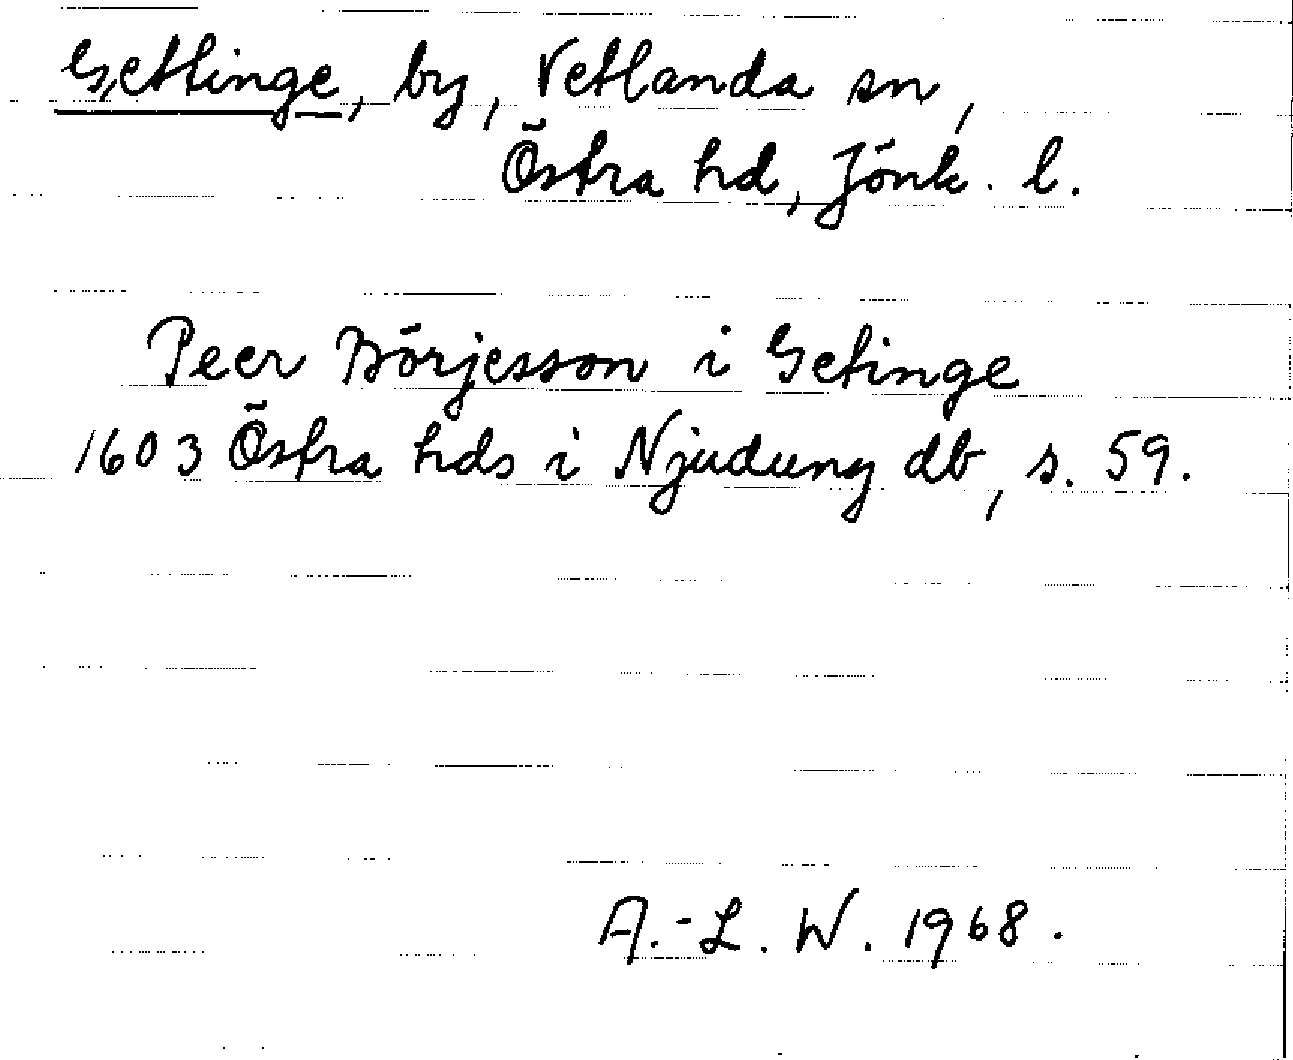 Gettinge, by, Vetlanda sn,
Östra hd, Jönk. l.
Peer Börjesson i Getinge
1603 Östra hds i Njudung db, s. 59.
A.-L. W. 1968.